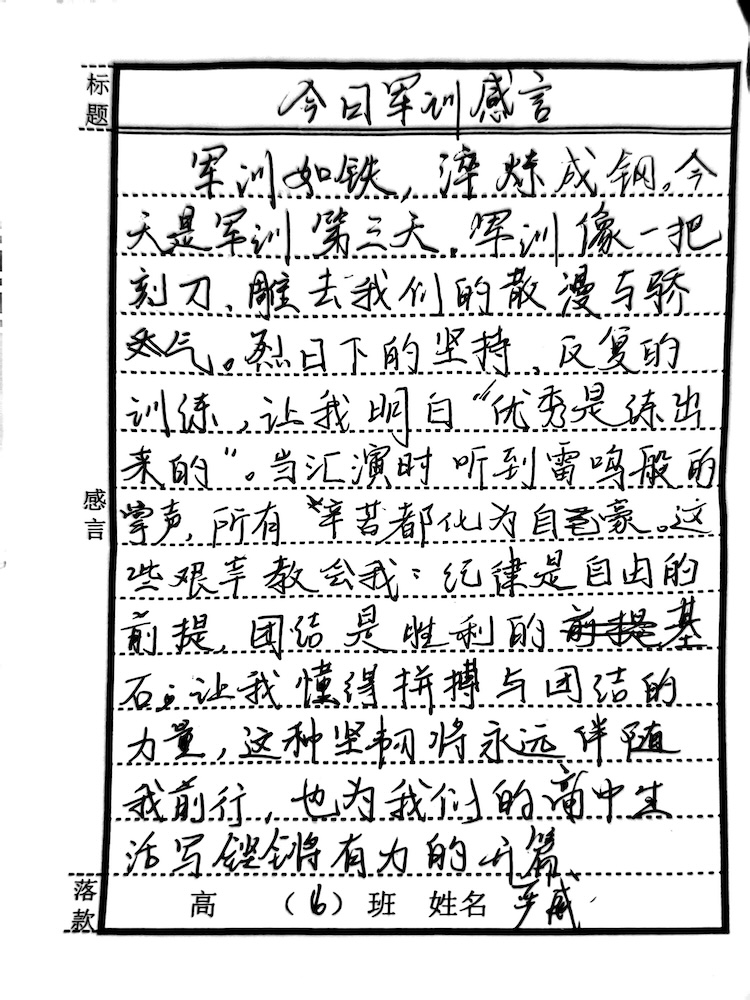 标题
今日军训感言
军训如铁，淬炼成钢。今
天是军训第三天，军训像一把
刻刀、雕去我们的散漫与骄
气。烈日下的坚持、反复的
训练，让我明白“优秀是练出
来的”。当汇演时听到雷鸣般的
掌声，所有辛苦都化为自豪。这
些艰辛教会我：纪律是自由的
前提，团结是胜利的前提基
感言
石。让我懂得拼搏与团结的
力量，这种坚韧将永远伴随
我前行，也为我们的高中生
活写铿锵有力的开篇
落款
高（6）班 姓名